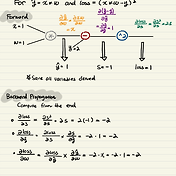 For ŷ = x * w and loss = (x * w - y)²
Forward
x = 1
w = 1
∂ŷ/∂w = ∂xw/∂w = x
∂(ŷ-y)/∂ŷ
∂s/∂ŷ = 1
∂loss/∂s = ∂s²/∂s = 2s
*
-
^2
y=2
ŷ = 1
s = -1
loss = 1
Save all variables desired
Backward Propagation
Compute from the end
∂loss/∂s = ∂s²/∂s = 2s = 2(-1) = -2
∂loss/∂ŷ = ∂loss/∂s × ∂s/∂ŷ = -2 · 1 = -2
∂loss/∂w = ∂loss/∂ŷ × ∂ŷ/∂w = -2 · x = -2 · 1 = -2